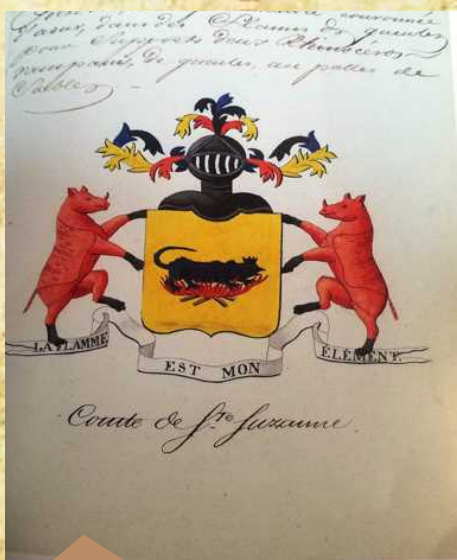 couronnée
d'azur, dans des flammes de gueules
pour Supports deux Rhinocéros
rampants, de gueules, au pattes de
Sables
LA FLAMME
EST MON
ÉLÉMENT.
Comte de Ste Suzanne.